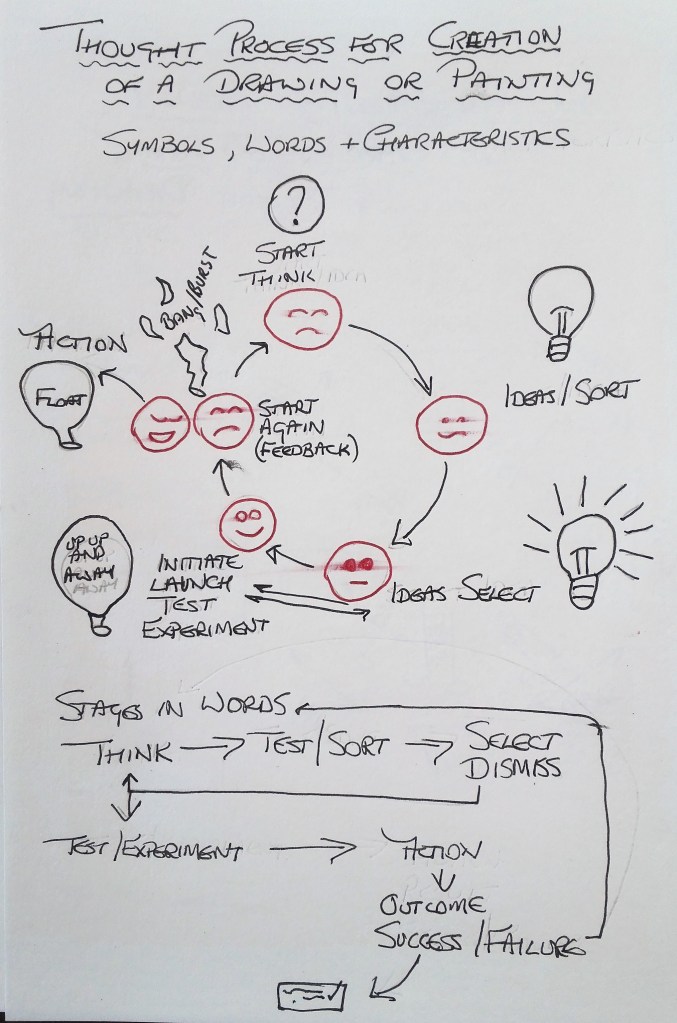 THOUGHT PROCESS FOR CREATION
OF A DRAWING OR PAINTING
SYMBOLS, WORDS + CHARACTERISTICS
?
START
THINK
BANG/BURST
ACTION
FLOAT
START
AGAIN
(FEEDBACK)
IDEAS/SORT
UP UP
AND
AWAY
INITIATE
LAUNCH
TEST
EXPERIMENT
IDEAS SELECT
STAGES IN WORDS
THINK → TEST/SORT → SELECT
DISMISS
TEST/EXPERIMENT → ACTION
OUTCOME
SUCCESS/FAILURE